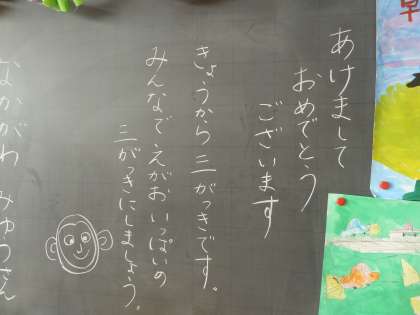 あけまして
おめでとう
ございます
きょうから三がっきです。
みんなでえがおいっぱいの
三がっきにしましょう。
なかがわ みゆうさん